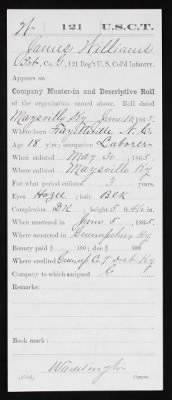 W | 121 | U.S.C.T.
James Williams
Pvt, Co. G, 121 Reg't U. S. Col'd Infantry.
Appears on
Company Muster-in and Descriptive Roll
of the organization named above. Roll dated
Maysville Ky June 1865.
Where born Fayetteville N. C.
Age 18 y'rs; occupation Laborer
When enlisted May 30, 1865.
Where enlisted Maysville Ky
For what period enlisted 3 years.
Eyes Hazel; hair Blk
Complexion DK; height 5 ft. in.
When mustered in June 5, 1865.
Where mustered in Ky
Bounty paid $ 100; due $ 100
Where credited Co. Ky
Company to which assigned
Remarks:
Book mark:
Waddington
(Copyist.)